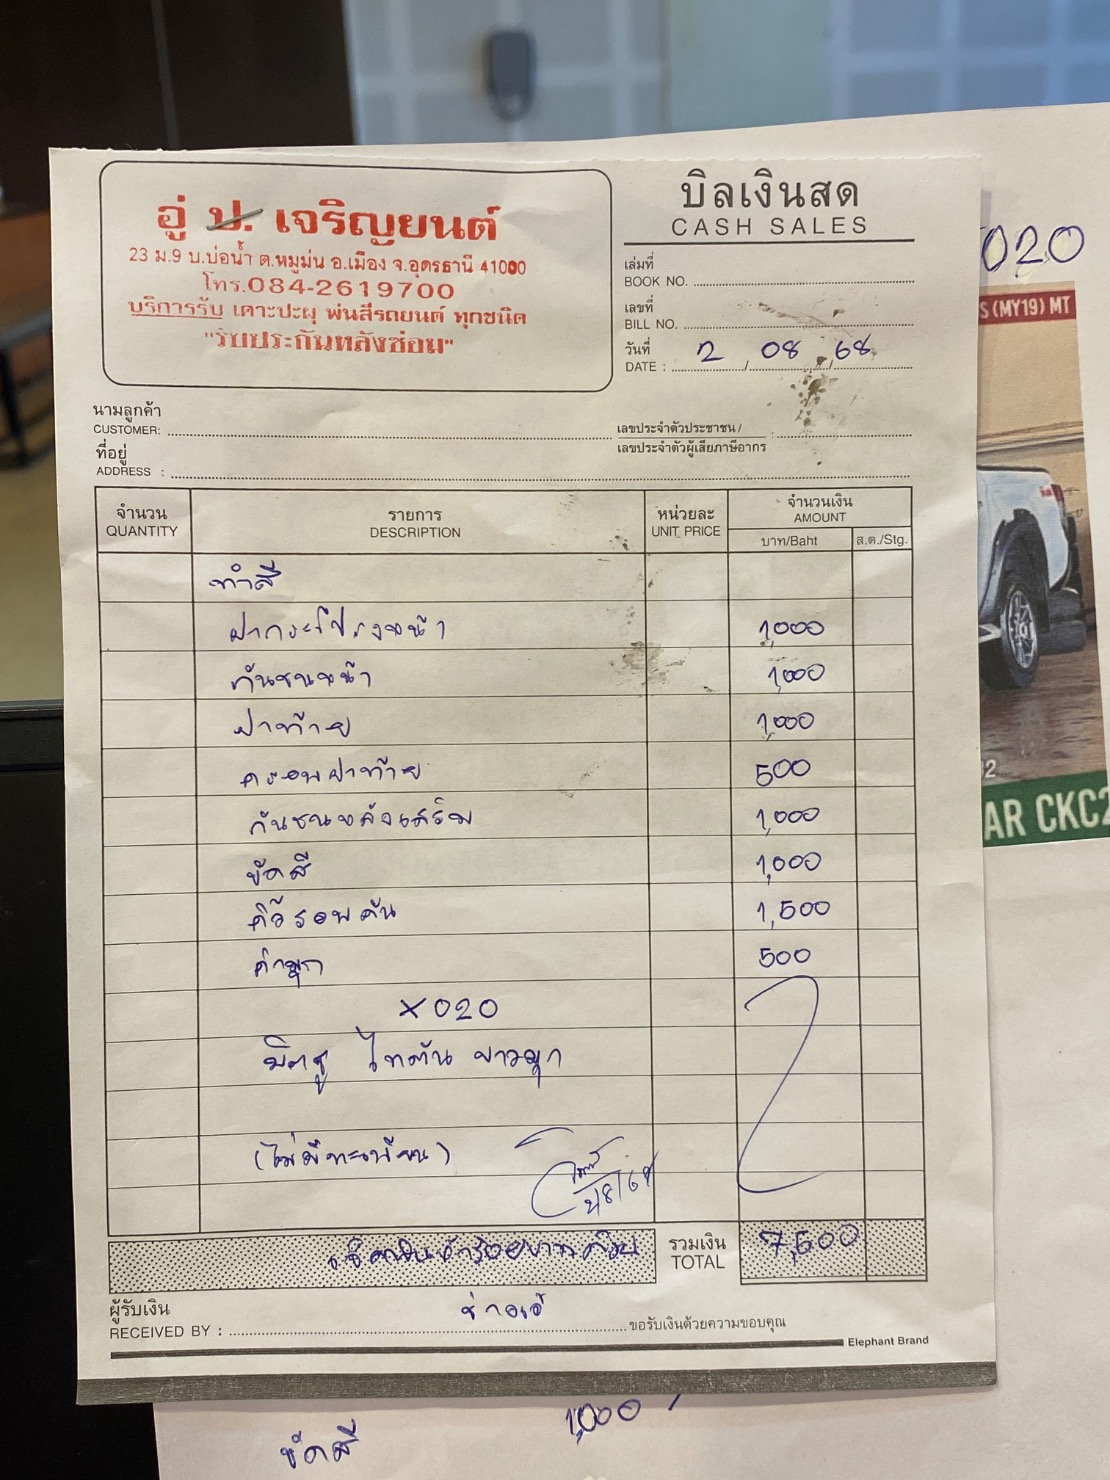 บิลเงินสด
CASH SALES
อู่ ป. เจริญยนต์
23 ม.9 บ.บ่อน้ำ ต.หมูม่น อ.เมือง จ.อุดรธานี 41000
โทร.084-2619700
บริการรับ เคาะปะผุ พ่นสีรถยนต์ ทุกชนิด
"รับประกันหลังซ่อม"
เล่มที่
BOOK NO.
เลขที่
BILL NO.
วันที่
DATE : 2 / 08 / 68
นามลูกค้า
CUSTOMER:
เลขประจำตัวประชาชน /
เลขประจำตัวผู้เสียภาษีอากร :
ที่อยู่
ADDRESS :
จำนวน รายการ หน่วยละ จำนวนเงิน
QUANTITY DESCRIPTION UNIT PRICE AMOUNT
บาท/Baht ส.ต./Stg.
ทำสี
ฝากระโปรงหน้า 1,000
กันชนหน้า 1,000
ฝาท้าย 1,000
ครอบฝาท้าย 500
กันชนหลังเสริม 1,000
ขัดสี 1,000
คิ้วรอบคัน 1,500
ค่ามุก 500
X020
มิตซู ไทตัน ขาวมุก
(ไม่มีทะเบียน)
2/8/68
เจ็ดพันห้าร้อยบาทถ้วน
รวมเงิน
TOTAL 7,500
ผู้รับเงิน
RECEIVED BY : ช่างเอ้ ขอรับเงินด้วยความขอบคุณ
Elephant Brand
020
S (MY19) MT
AR CKC2
ขัดสี 1,000